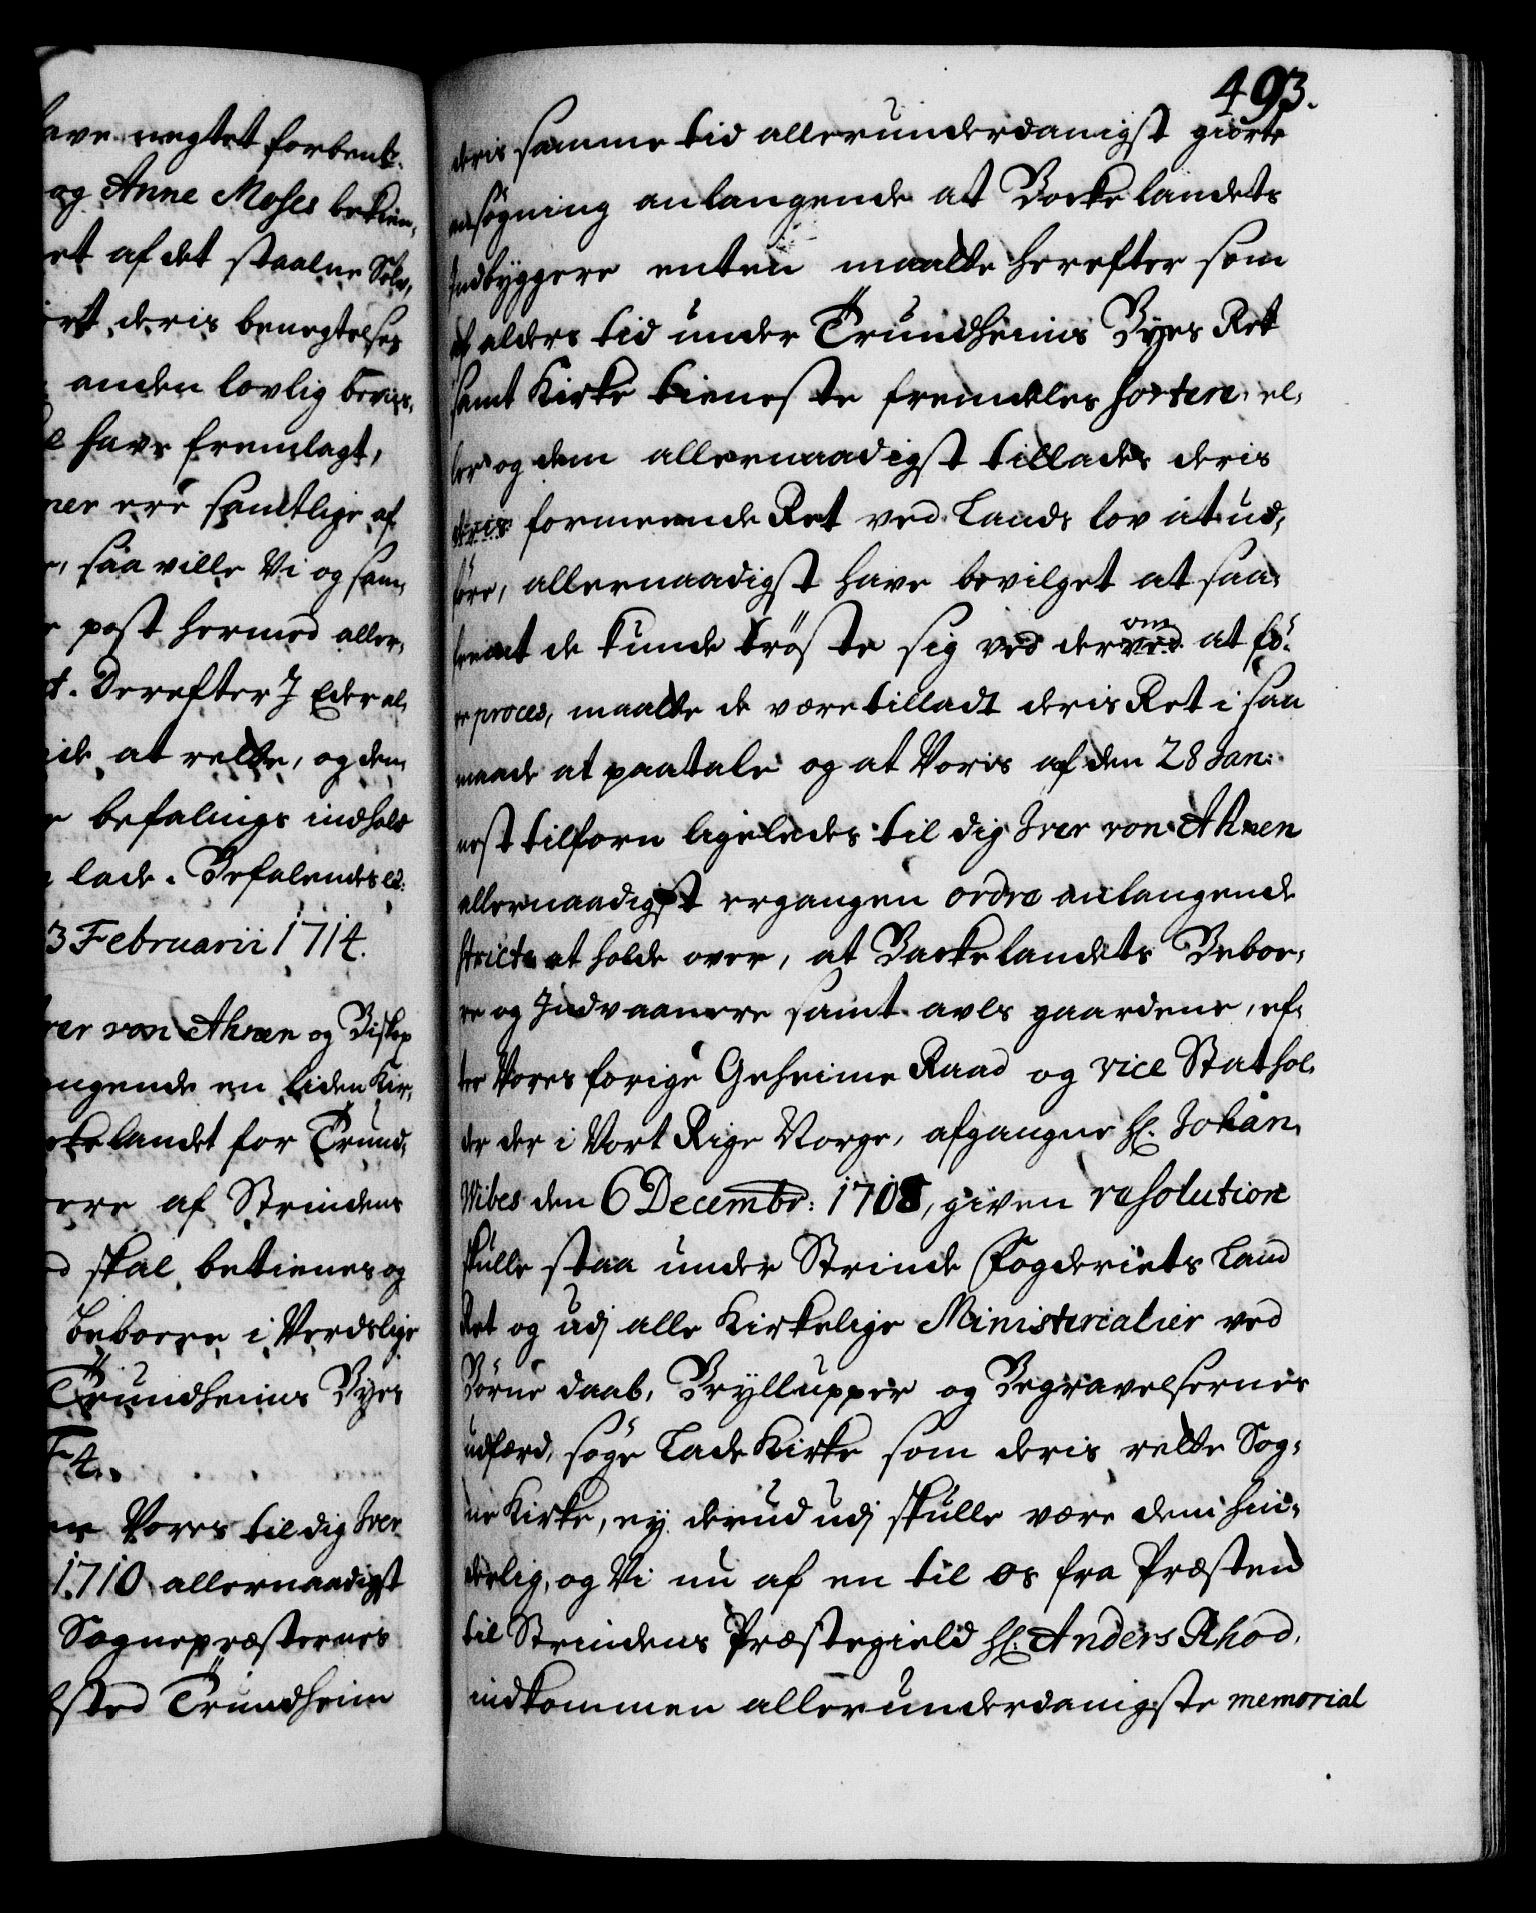 ave negtet forbente
og Anne Moses bekien,
et af det staalne Sølv,
ort deris benegtelses
anden lovlig beviis,
have fremlagt,
ner ere samtlige af
saa ville Vi og sam,
post hermed aller,
t. Derefter I Eder al,
ide at rette, og dem
befalings indhold
lade. Befalendes ed:
3 Februarii 1714.
ver von Ahnen og Biskop
angende en liden Kir,
kelandet for Trund,
ere af Strindens
skal betienes og
beboere i Verdslige
Trundheims Byes
Vores til dig Iver
1710 allernaadigst
Sognepræsternes
sted Trundheim
493.
deris samme tid allerunderdanigst giorte
ansøgning anlangende at Backelandets
Indbyggere enten maatte herefter som
af alders tid under Trundheims Byes Ret
samt Kirke tieneste fremdeles sortere, el,
ler og dem allernaadigst tillades deris
deris formeende Ret ved Lands lov at ud,
føre, allernaadigst have bevilget at saa,
fremt de kunde trøste sig ved derved om at fø,
re proces, maatte de være tilladt deris Ret i saa
maade at paatale og at Voris af den 28 Jan:
nest tilforn ligeledes til dig Iver von Ahnen
allernaadigst ergangen ordre anlangende
stricte at holde over, at Backelandets Beboe,
re og Indvaanere samt avls gaardene, ef,
ter Vores forige Geheime Raad og vice Stathol,
der der i Vort Rige Norge, afgangne Hr. Johan
Wibes den 6 Decembr: 1708, given resolution
skulle staa under Strinde Fogderiets Land
Ret og udj alle Kirkelige Ministerialier ved
Børne daab, Bryllupper og Begravelsernes
udfærd, søge Lade Kirke som deris rette Sog,
ne Kirke, ey derud udj skulle være dem hin,
derlig, og Vi nu af en til os fra Præsten
til Strindens Præstegield Hr. Anders Rhod,
indkommen allerunderdanigste memorial